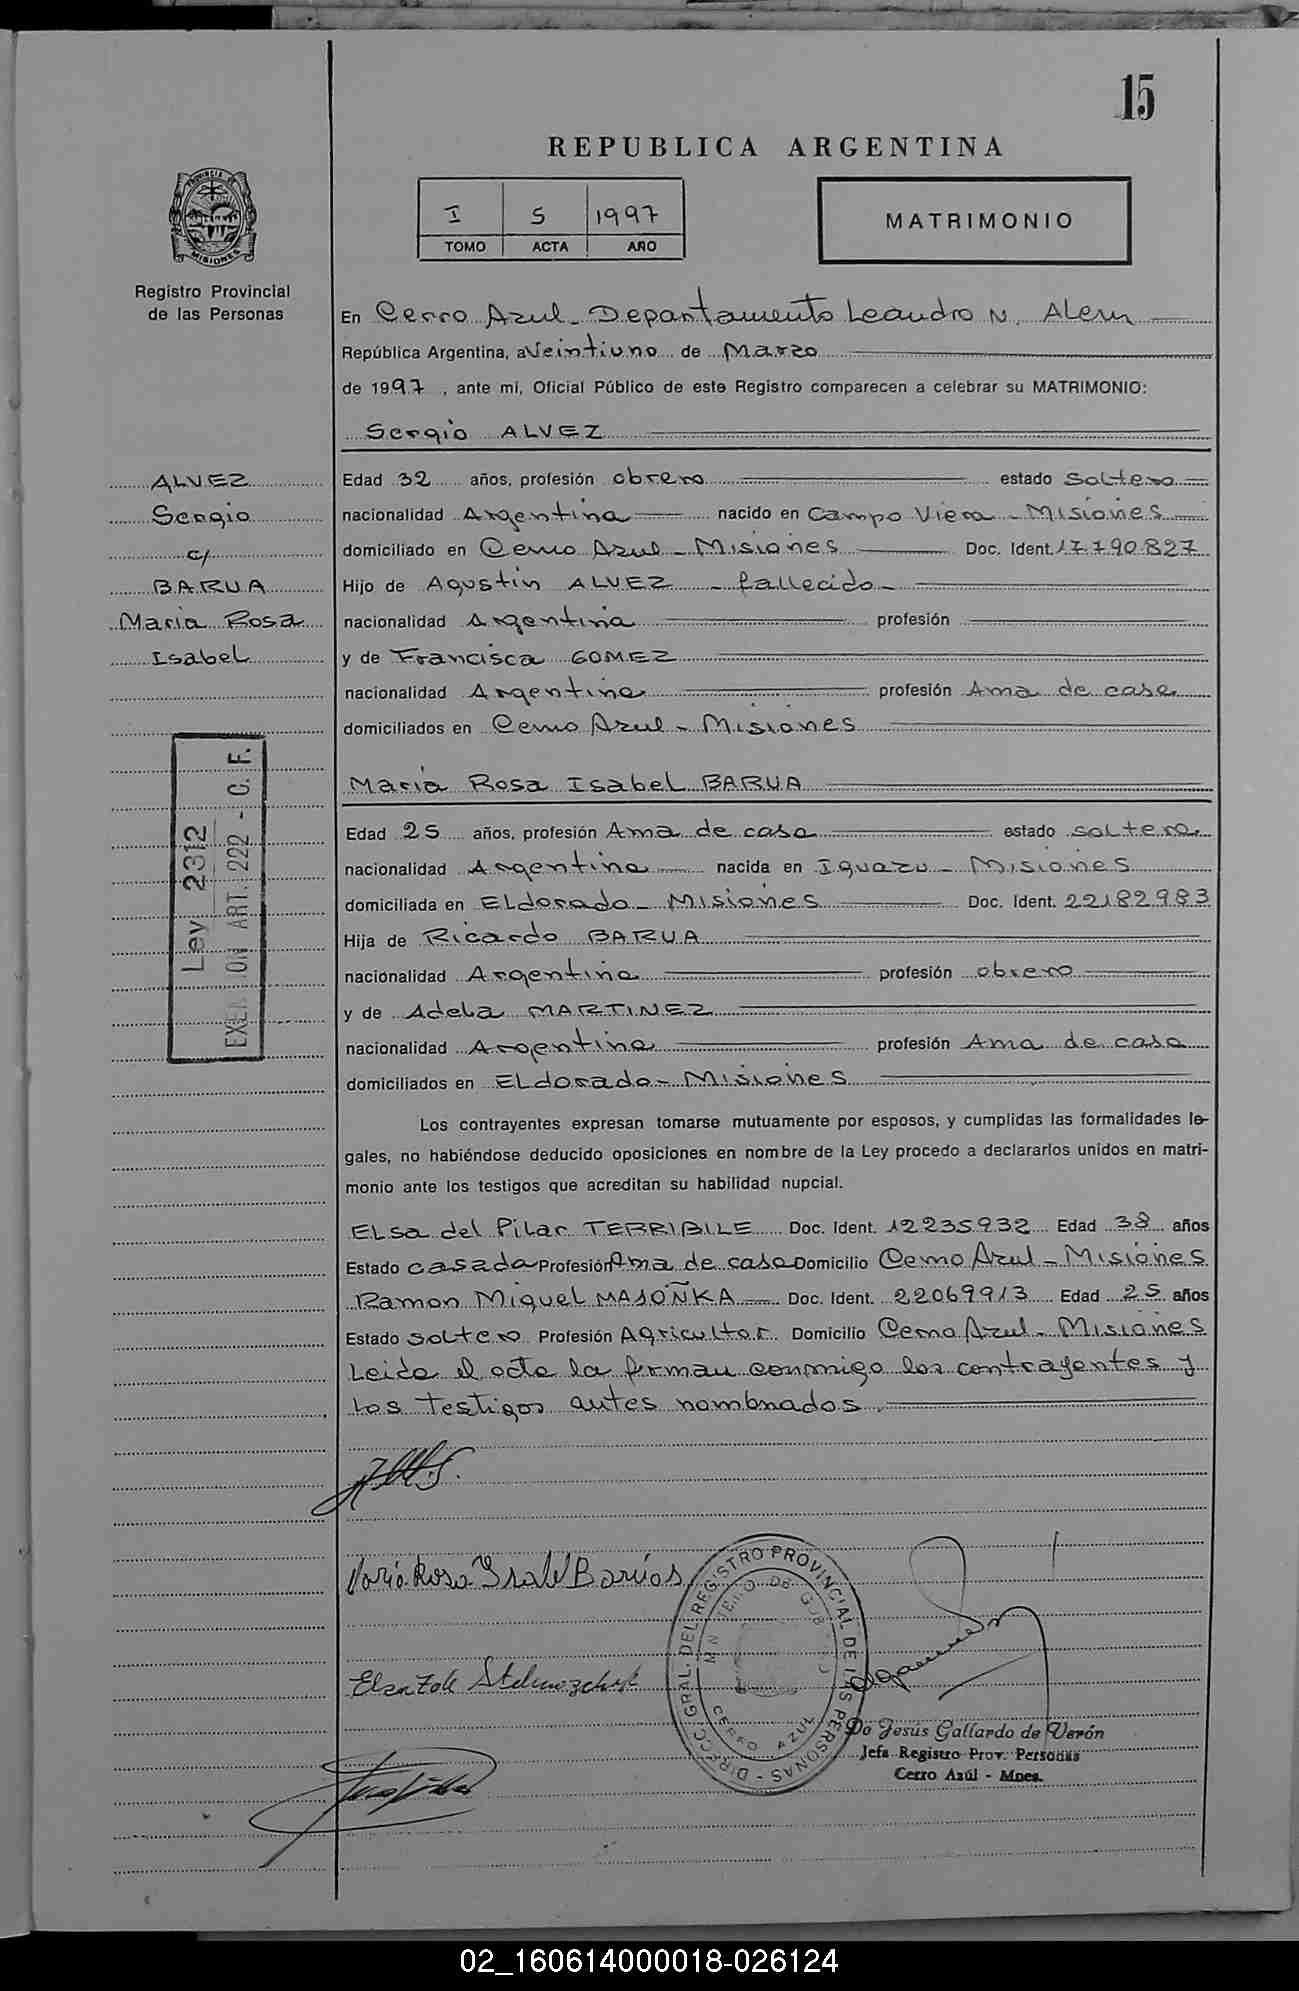 15
REPUBLICA ARGENTINA
I 5 1997
TOMO ACTA AÑO
MATRIMONIO
PROVINCIA DE MISIONES
Registro Provincial
de las Personas
En Cerro Azul - Departamento Leandro N. Alem
República Argentina, a Veintiuno de Marzo
de 1997, ante mi, Oficial Público de este Registro comparecen a celebrar su MATRIMONIO:
Sergio ALVEZ
ALVEZ
Sergio
c/
BARUA
Maria Rosa
Isabel
Ley 2312
EXENCION ART. 222 - C. F.
Edad 32 años, profesión obrero estado soltero
nacionalidad Argentina nacido en Campo Viera - Misiones
domiciliado en Cerro Azul - Misiones Doc. Ident. 17.790.827
Hijo de Agustin ALVEZ - fallecido -
nacionalidad Argentina profesión
y de Francisca GOMEZ
nacionalidad Argentina profesión Ama de casa
domiciliados en Cerro Azul - Misiones
Maria Rosa Isabel BARUA
Edad 25 años, profesión Ama de casa estado soltera
nacionalidad Argentina nacida en Iguazu - Misiones
domiciliada en ELdorado - Misiones Doc. Ident. 22182983
Hija de Ricardo BARUA
nacionalidad Argentina profesión obrero
y de Adela MARTINEZ
nacionalidad Argentina profesión Ama de casa
domiciliados en ELdorado - Misiones
Los contrayentes expresan tomarse mutuamente por esposos, y cumplidas las formalidades le-
gales, no habiéndose deducido oposiciones en nombre de la Ley procedo a declararlos unidos en matri-
monio ante los testigos que acreditan su habilidad nupcial.
ELsa del Pilar TERRIBILE Doc. Ident. 12235932 Edad 38 años
Estado casada Profesión Ama de casa Domicilio Cerro Azul - Misiones
Ramon Miguel MASOÑKA Doc. Ident. 22069913 Edad 25 años
Estado soltero Profesión Agricultor Domicilio Cerro Azul - Misiones
Leida el acta la firman conmigo los contrayentes y
los testigos antes nombrados
Maria Rosa Isabel Barúas
DIRECC. GRAL. DEL REGISTRO PROVINCIAL DE LAS PERSONAS -
MINISTERIO DE GOBIERNO
CERRO AZUL
Do Jesús Gallardo de Verón
Jefa Registro Prov. Personas
Cerro Azúl - Mnes.
02_160614000018-026124